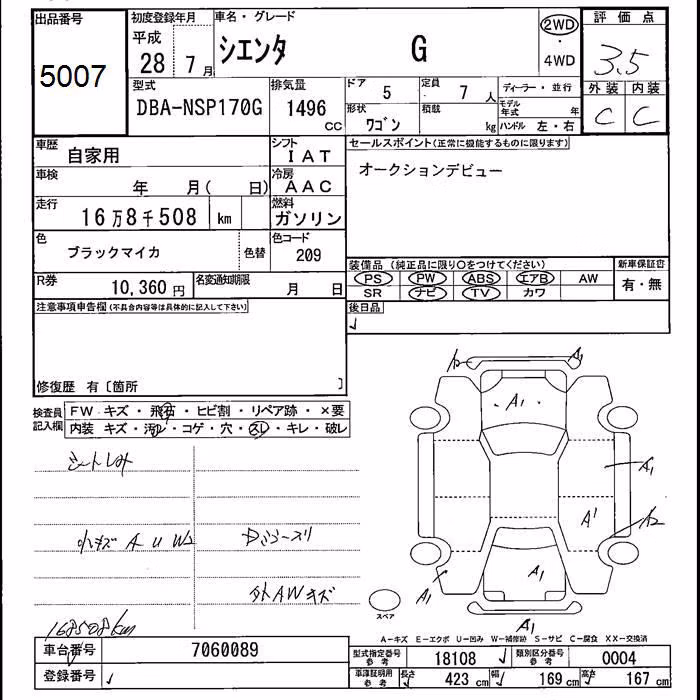 出品番号 初度登録年月 車名・グレード 2WD 評価点
5007 平成 28 7月 シエンタ G ・ 4WD 3.5
型式 排気量 ドア 5 定員 7人 ディーラー・並行 外装 内装
DBA-NSP170G 1496 cc 形状 ワゴン 積載 kg モデル年式 年 C C
ハンドル 左・右
車歴 自家用 シフト IAT セールスポイント(正常に機能するものに限ります)
車検 年 月( 日) 冷房 AAC オークションデビュー
走行 16万8千508 km 燃料 ガソリン
色 ブラックマイカ 色替 色コード 209
R券 10,360円 名変通知期限 月 日
装備品 (純正品に限り○をつけてください) 新車保証書
PS PW ABS エアB AW 有・無
SR ナビ TV カワ
注意事項申告欄(不具合内容等は具体的に記入して下さい) 後日品
修復歴 有〔箇所 〕
検査員記入欄 FW キズ・飛石・ヒビ割・リペア跡・×要
内装 キズ・汚レ・コゲ・穴・スレ・キレ・破レ
シートしみ
小キズ A U W2
外AWキズ
A1
A1
A1
A1
A2
A1
A1
A1
スペア
168508km
A-キズ E-エクボ U-凹み W-補修跡 S-サビ C-腐食 XX-交換済
車台番号 7060089 型式指定番号 参考 18108 類別区分番号 参考 0004
登録番号 車庫証明用 参考 長さ 423 cm 幅 169 cm 高さ 167 cm